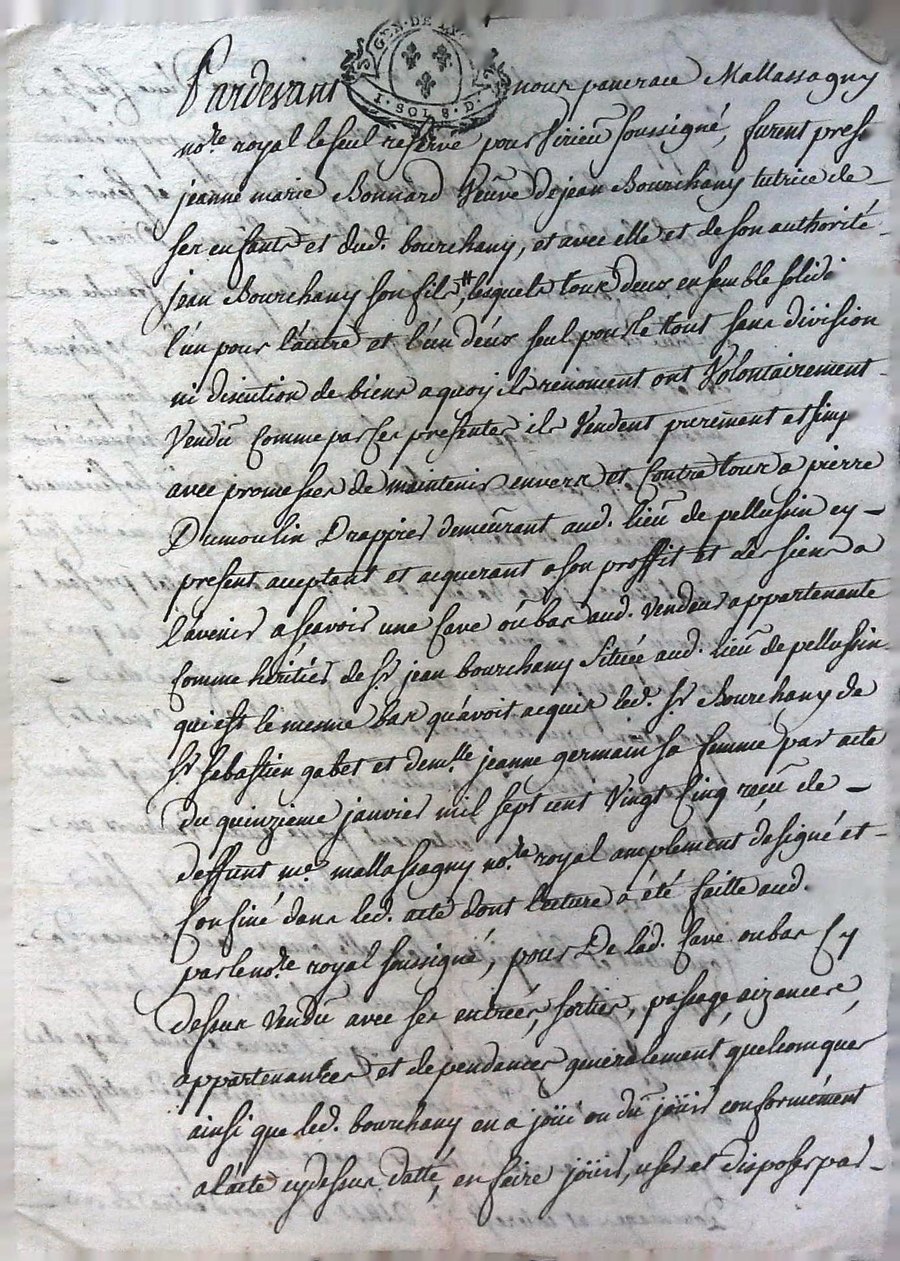 GEN·DE LY
1·SOL 8·D·
Pardevant nous pancrace Mallassagny
no.re royal le seul reservé pour Sirieu soussigné, furent pres.
jeanne marie Bonnard Veuve de jean Bourchany tutrice de
ses enfants et dud. bourchany, et avec elle et de son authorité
jean Bourchany son fils # lesquels tous deux ensemble solid.
l'un pour l'autre et l'un d'eux seul pour le tout sans division
ni discution de biens a quoy ils renoncent ont Volontairement
Vendu comme par ces presentes ils Vendent purement et simp
avec promesses de maintenir envers et contre tous a pierre
Dumoulin Drappier demeurant aud. lieu de pellussin cy
present acceptant et acquerant a son proffit et des siens a
l'avenir a scavoir une Cave ou bas aud. Vendeur appartenante
comme héritier de Sr jean bourchany Située aud. lieu de pellussin
qui est le mesme bas qu'avoit acquis led. Sr Bourchany de
Sr sebastien gabet et dem.lle jeanne germain sa femme par acte
du quinzieme janvier mil sept cent Vingt Cinq reçu de
deffunt me mallassagny no.re royal amplement designé et
Confiné dans led. acte dont lecture a été faitte aud.
par le no.re royal soussigné, pour De lad. Cave ou bas Cy
dessus Vendu avec ses entrées, sorties, passage, aizances,
appartenances et dependances generalement quelconques
ainsi que led. bourchany en a joüi ou dû joüir conformément
a l'acte cy dessus datté, en faire joüir, user et disposer par